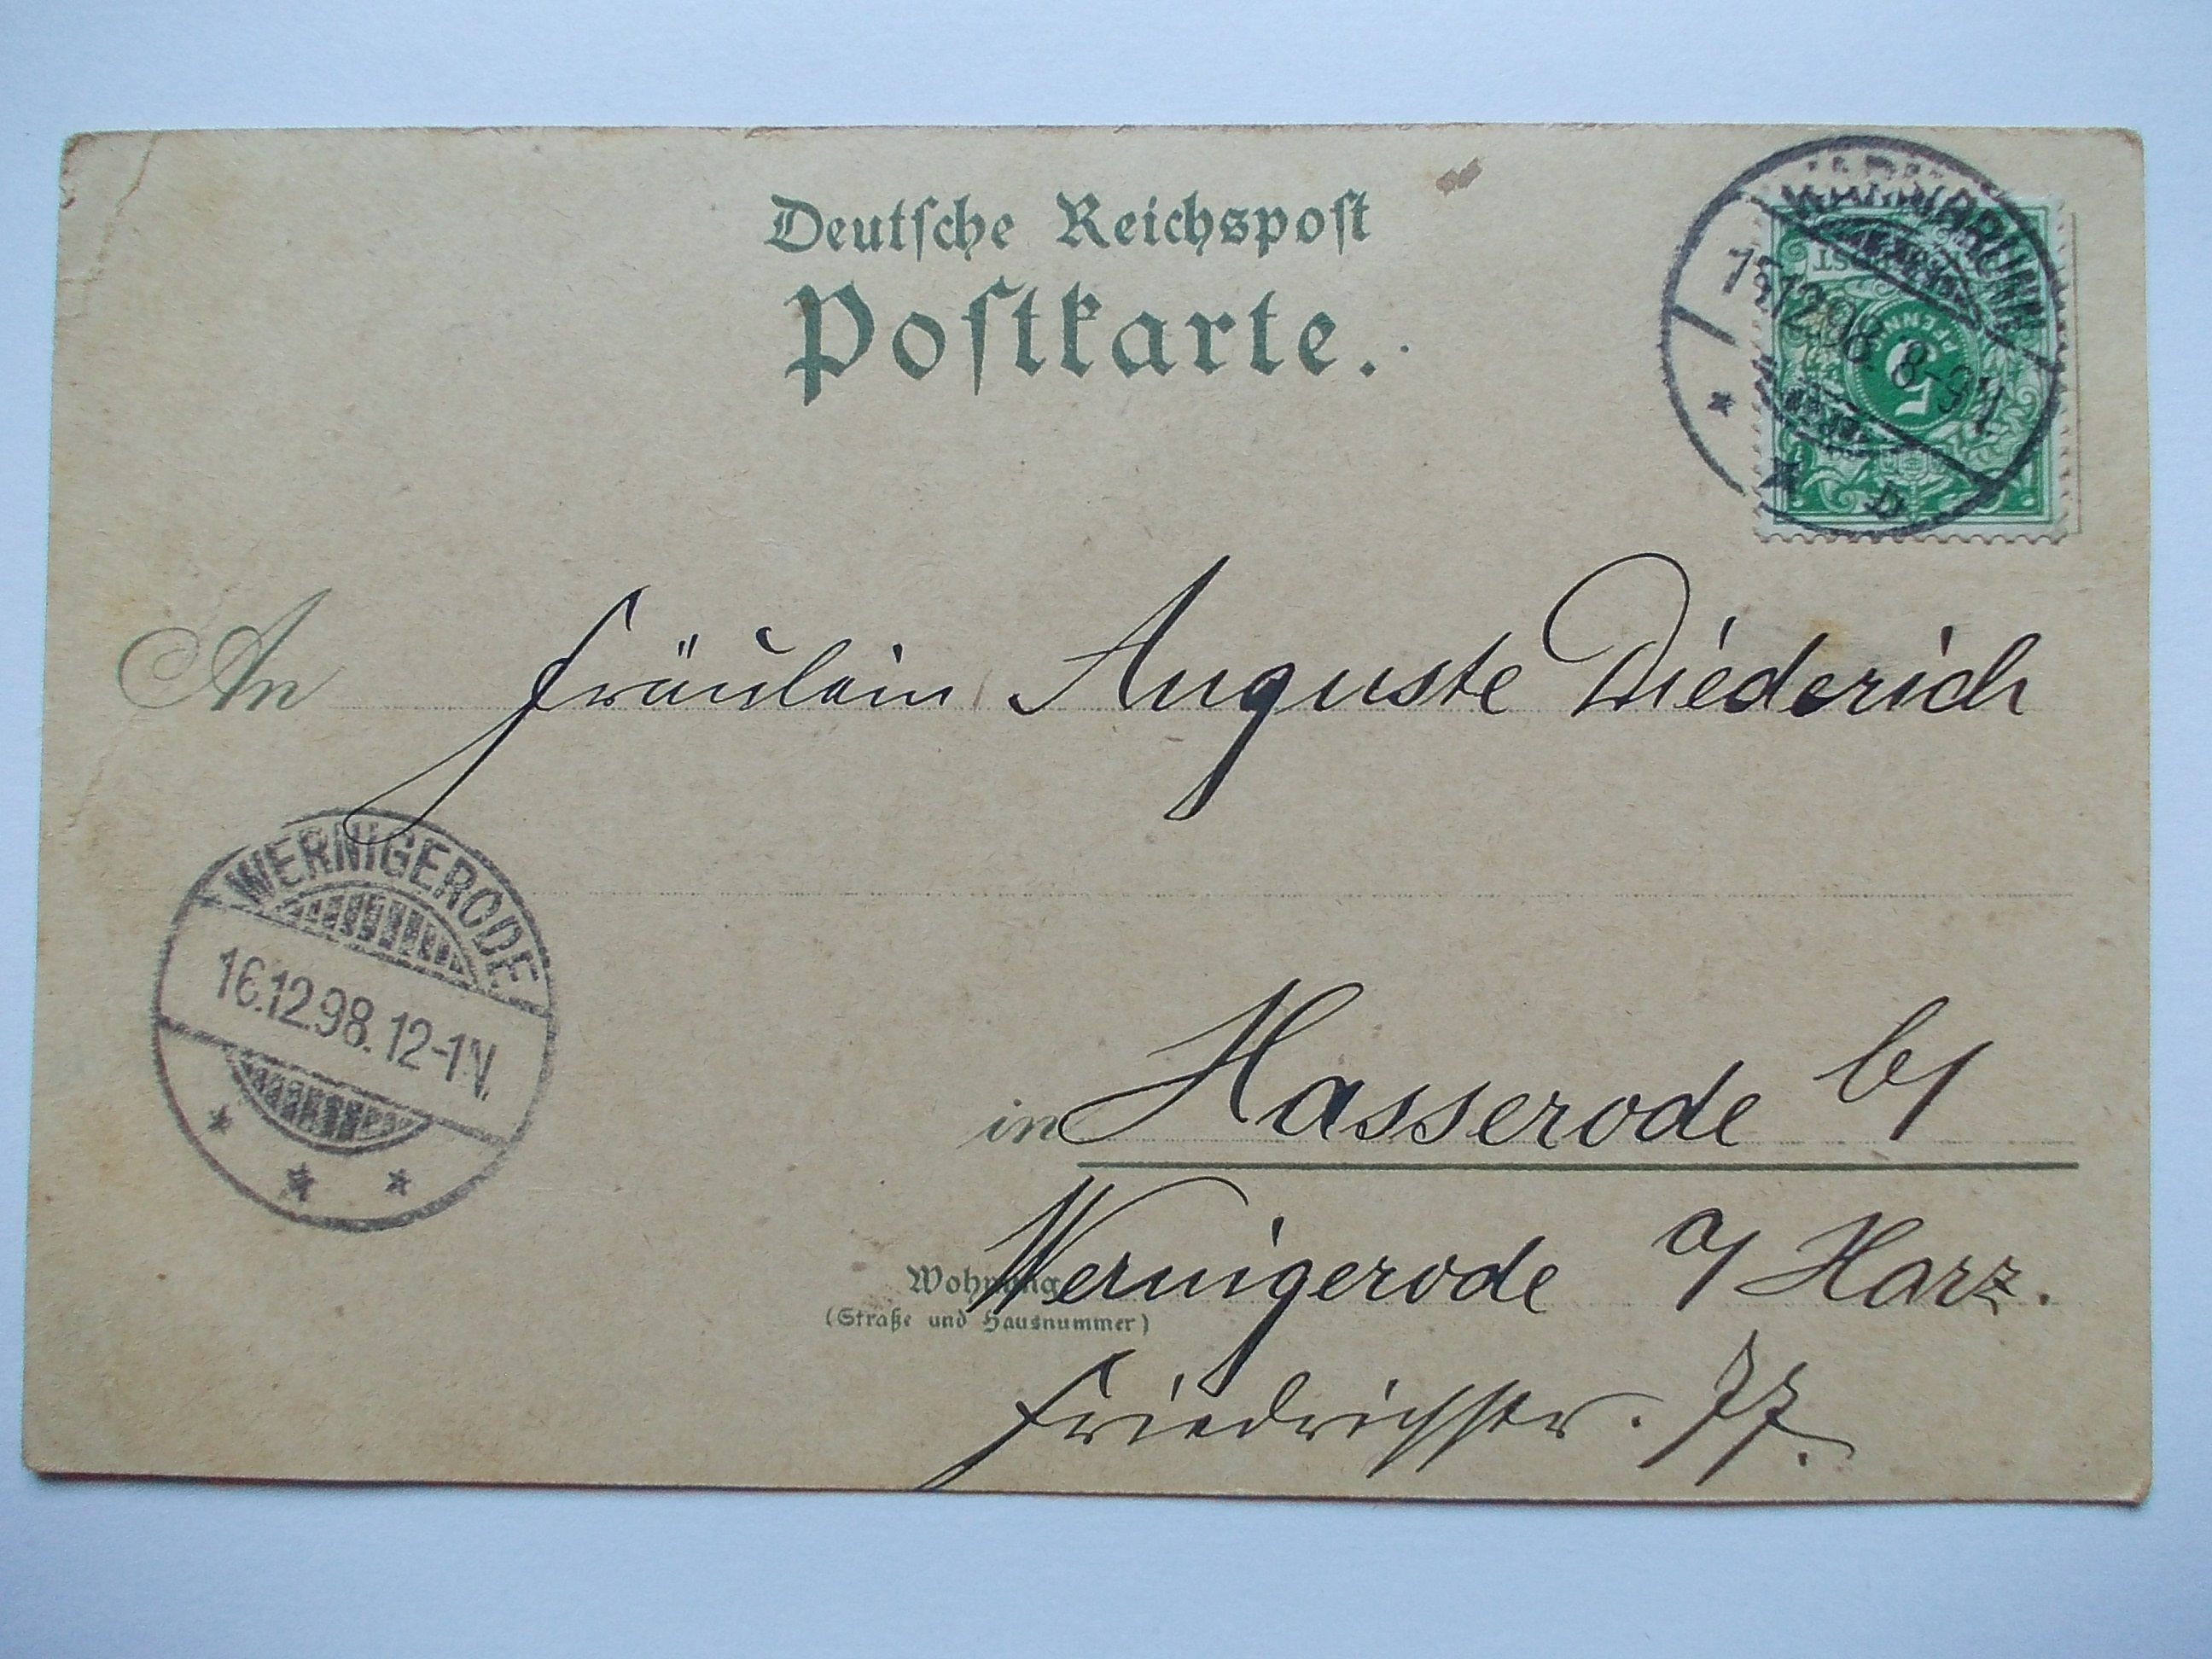 Deutsche Reichspost
Postkarte.
12.98. 8-9V.
5
PFENNIG
D
An Fräulein Auguste Diederich
WERNIGERODE
16.12.98.12-1V.
in Hasserode b/
Wernigerode a/Harz.
Wohnung
(Straße und Hausnummer)
Friedrichstr. 77.